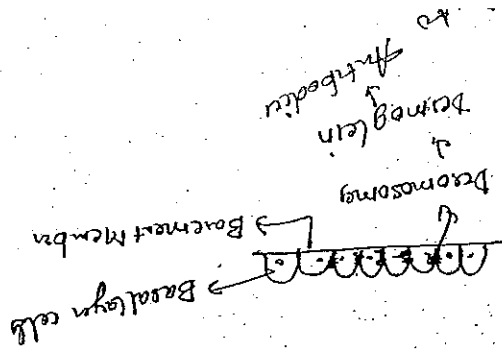 → Basal layer cells
→ Basement Membn
Desmosomes
↓
Desmoglein
↓
Antibodies